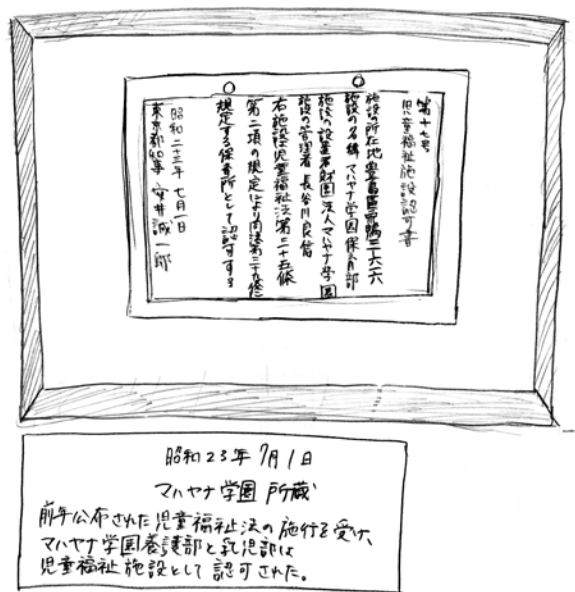 第十七号
児童福祉施設認可書
施設の所在地 豊島区巣鴨二六一六
施設の名称 マハヤナ学園保育部
施設の設置者財団法人マハヤナ学園
施設の管理者 長谷川良信
右施設は児童福祉法第三十五條
第二項の規定により同法第三十九條に
規定する保育所として認可する
昭和二十三年 七月一日
東京都知事 安井誠一郎
昭和23年7月1日
マハヤナ学園 所蔵
前年公布された児童福祉法の施行を受け、
マハヤナ学園養護部と乳児部は
児童福祉施設として認可された。